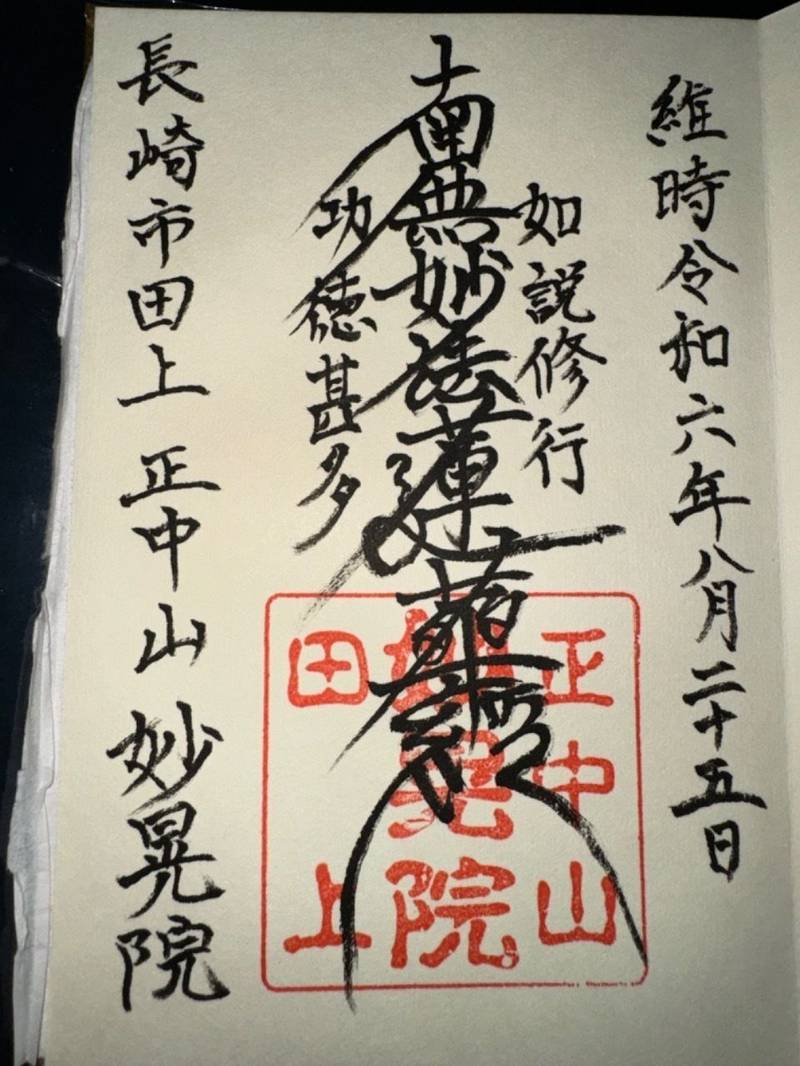 維時令和六年八月二十五日
如説修行
南無妙法蓮華経
功徳甚多
長崎市田上 正中山 妙晃院
正中山
妙晃院
田上